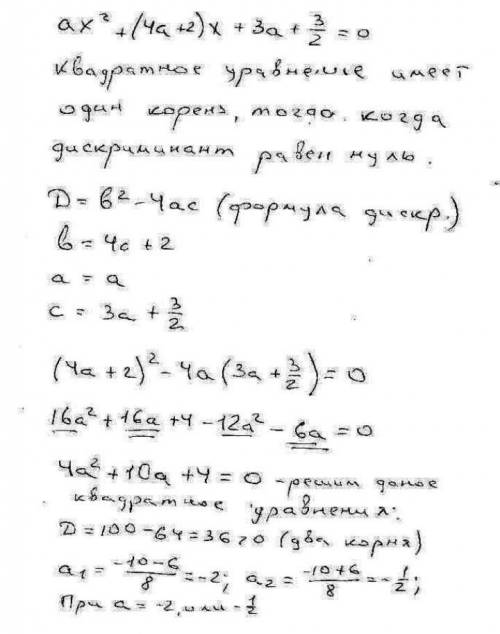 ax² + (4a+2)x + 3a + 3/2 = 0
квадратное уравнение имеет
один корень, тогда. когда
дискриминант равен нуль.
D = b² - 4ac (формула дискр.)
b = 4a + 2
a = a
c = 3a + 3/2
(4a + 2)² - 4a(3a + 3/2) = 0
16a² + 16a + 4 - 12a² - 6a = 0
4a² + 10a + 4 = 0 - решим даное
квадратное уравнения:
D = 100 - 64 = 36 > 0 (два корня)
a₁ = (-10-6)/8 = -2; a₂ = (-10+6)/8 = -1/2;
При a = -2, или -1/2